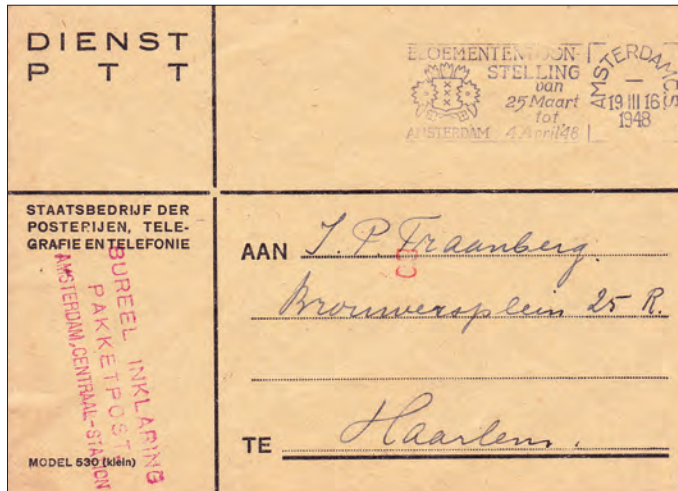 DIENST
PTT
BLOEMENTENTOON-
STELLING
van
25 Maart
tot
AMSTERDAM 4 April '48
AMSTERDAM C.S.
19 III 16
1948
STAATSBEDRIJF DER
POSTERIJEN, TELE-
GRAFIE EN TELEFONIE
BUREEL INKLARING
PAKKETPOST
AMSTERDAM, CENTRAAL-STATION
MODEL 530 (klein)
AAN J. P. Traanberg.
Brouwersplein 25 R.
TE Haarlem.